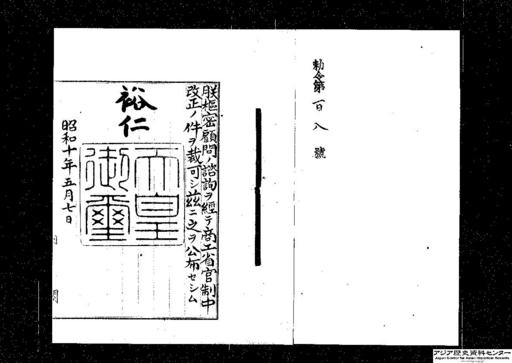 勅令第百八號
朕樞密顧問ノ諮詢ヲ經テ商工省官制中
改正ノ件ヲ裁可シ玆ニ之ヲ公布セシム
裕仁
天皇
御璽
昭和十年五月七日
アジア歴史資料センター
Japan Center for Asian Historical Records